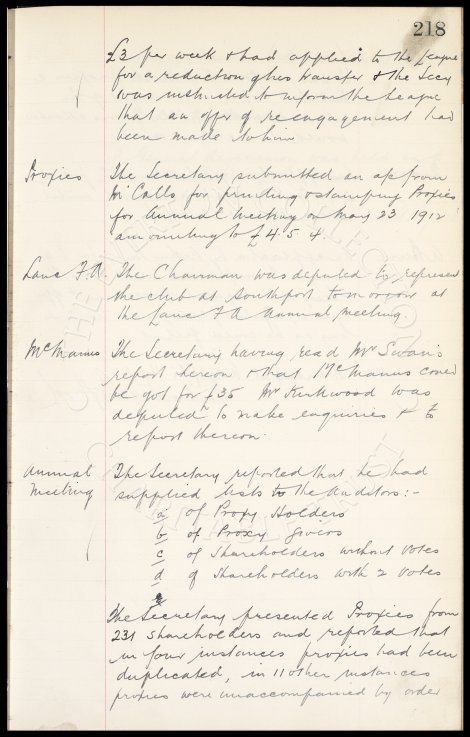 218
£3 per week & had applied to the League
for a reduction of his transfer & the Secy
was instructed to inform the League
that an offer of reengagement had
been made to him
Proxies The Secretary submitted an a/c from
McCalls for printing & stamping Proxies
for Annual Meeting on May 23 1912
amounting to £4. 5. 4.
Lancs F.A. The Chairman was deputed to represent
the club at Southport tomorrow at
the Lancs F A annual meeting
McManus The Secretary having read Mr Swan's
report hereon & that McManus could
be got for £35 Mr Kirkwood was
deputed to make enquiries & to
report thereon.
Annual The Secretary reported that he had
Meeting supplied lists to the Auditors:-
a of Proxy Holders
b of Proxy Givers
c of Shareholders without Votes
d of Shareholders with 2 Votes
The Secretary presented Proxies from
231 shareholders and reported that
in four instances proxies had been
duplicated, in 11 other instances
proxies were unaccompanied by order